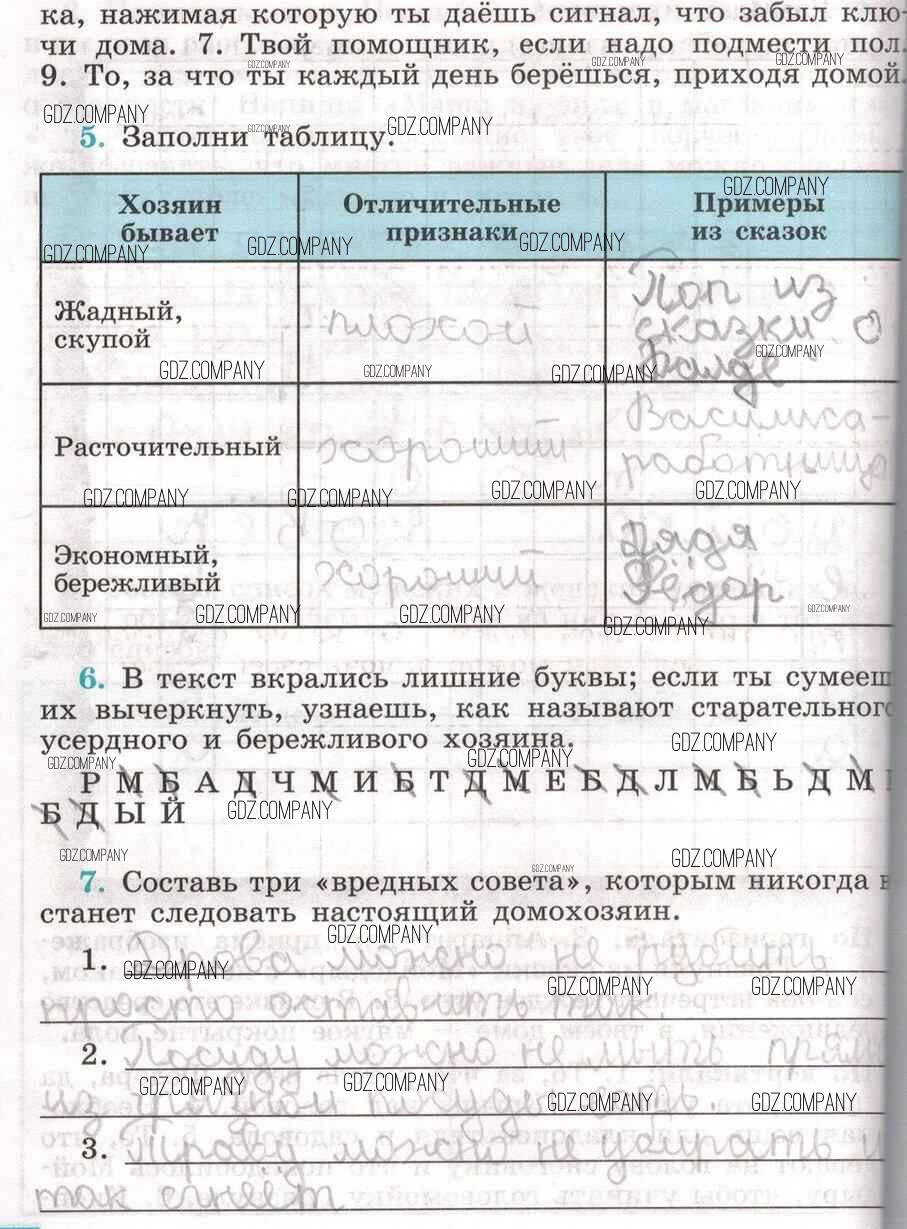 ка, нажимая которую ты даёшь сигнал, что забыл клю-
чи дома. 7. Твой помощник, если надо подмести пол.
9. То, за что ты каждый день берёшься, приходя домой.
5. Заполни таблицу.
Хозяин бывает
Отличительные признаки
Примеры из сказок
Жадный, скупой
плохой
Поп из сказки о Балде
Расточительный
хороший
Василиса-работница
Экономный, бережливый
хороший
Дядя Фёдор
6. В тексте вкрались лишние буквы; если ты сумееш
их вычеркнуть, узнаешь, как называют старательного
усердного и бережливого хозяина.
Р М Б А Д Ч М И Б Т Д М Е Б Д Л М Б Ь Д М
Б Д Ы Й
7. Составь три «вредных совета», которым никогда н
станет следовать настоящий домохозяин.
1. Дрова можно не рубить
просто оставить так.
2. Посуду можно не мыть прям
из грязной посуды есть.
3. Траву можно не убирать и
так сгнеёт
GDZ.COMPANY